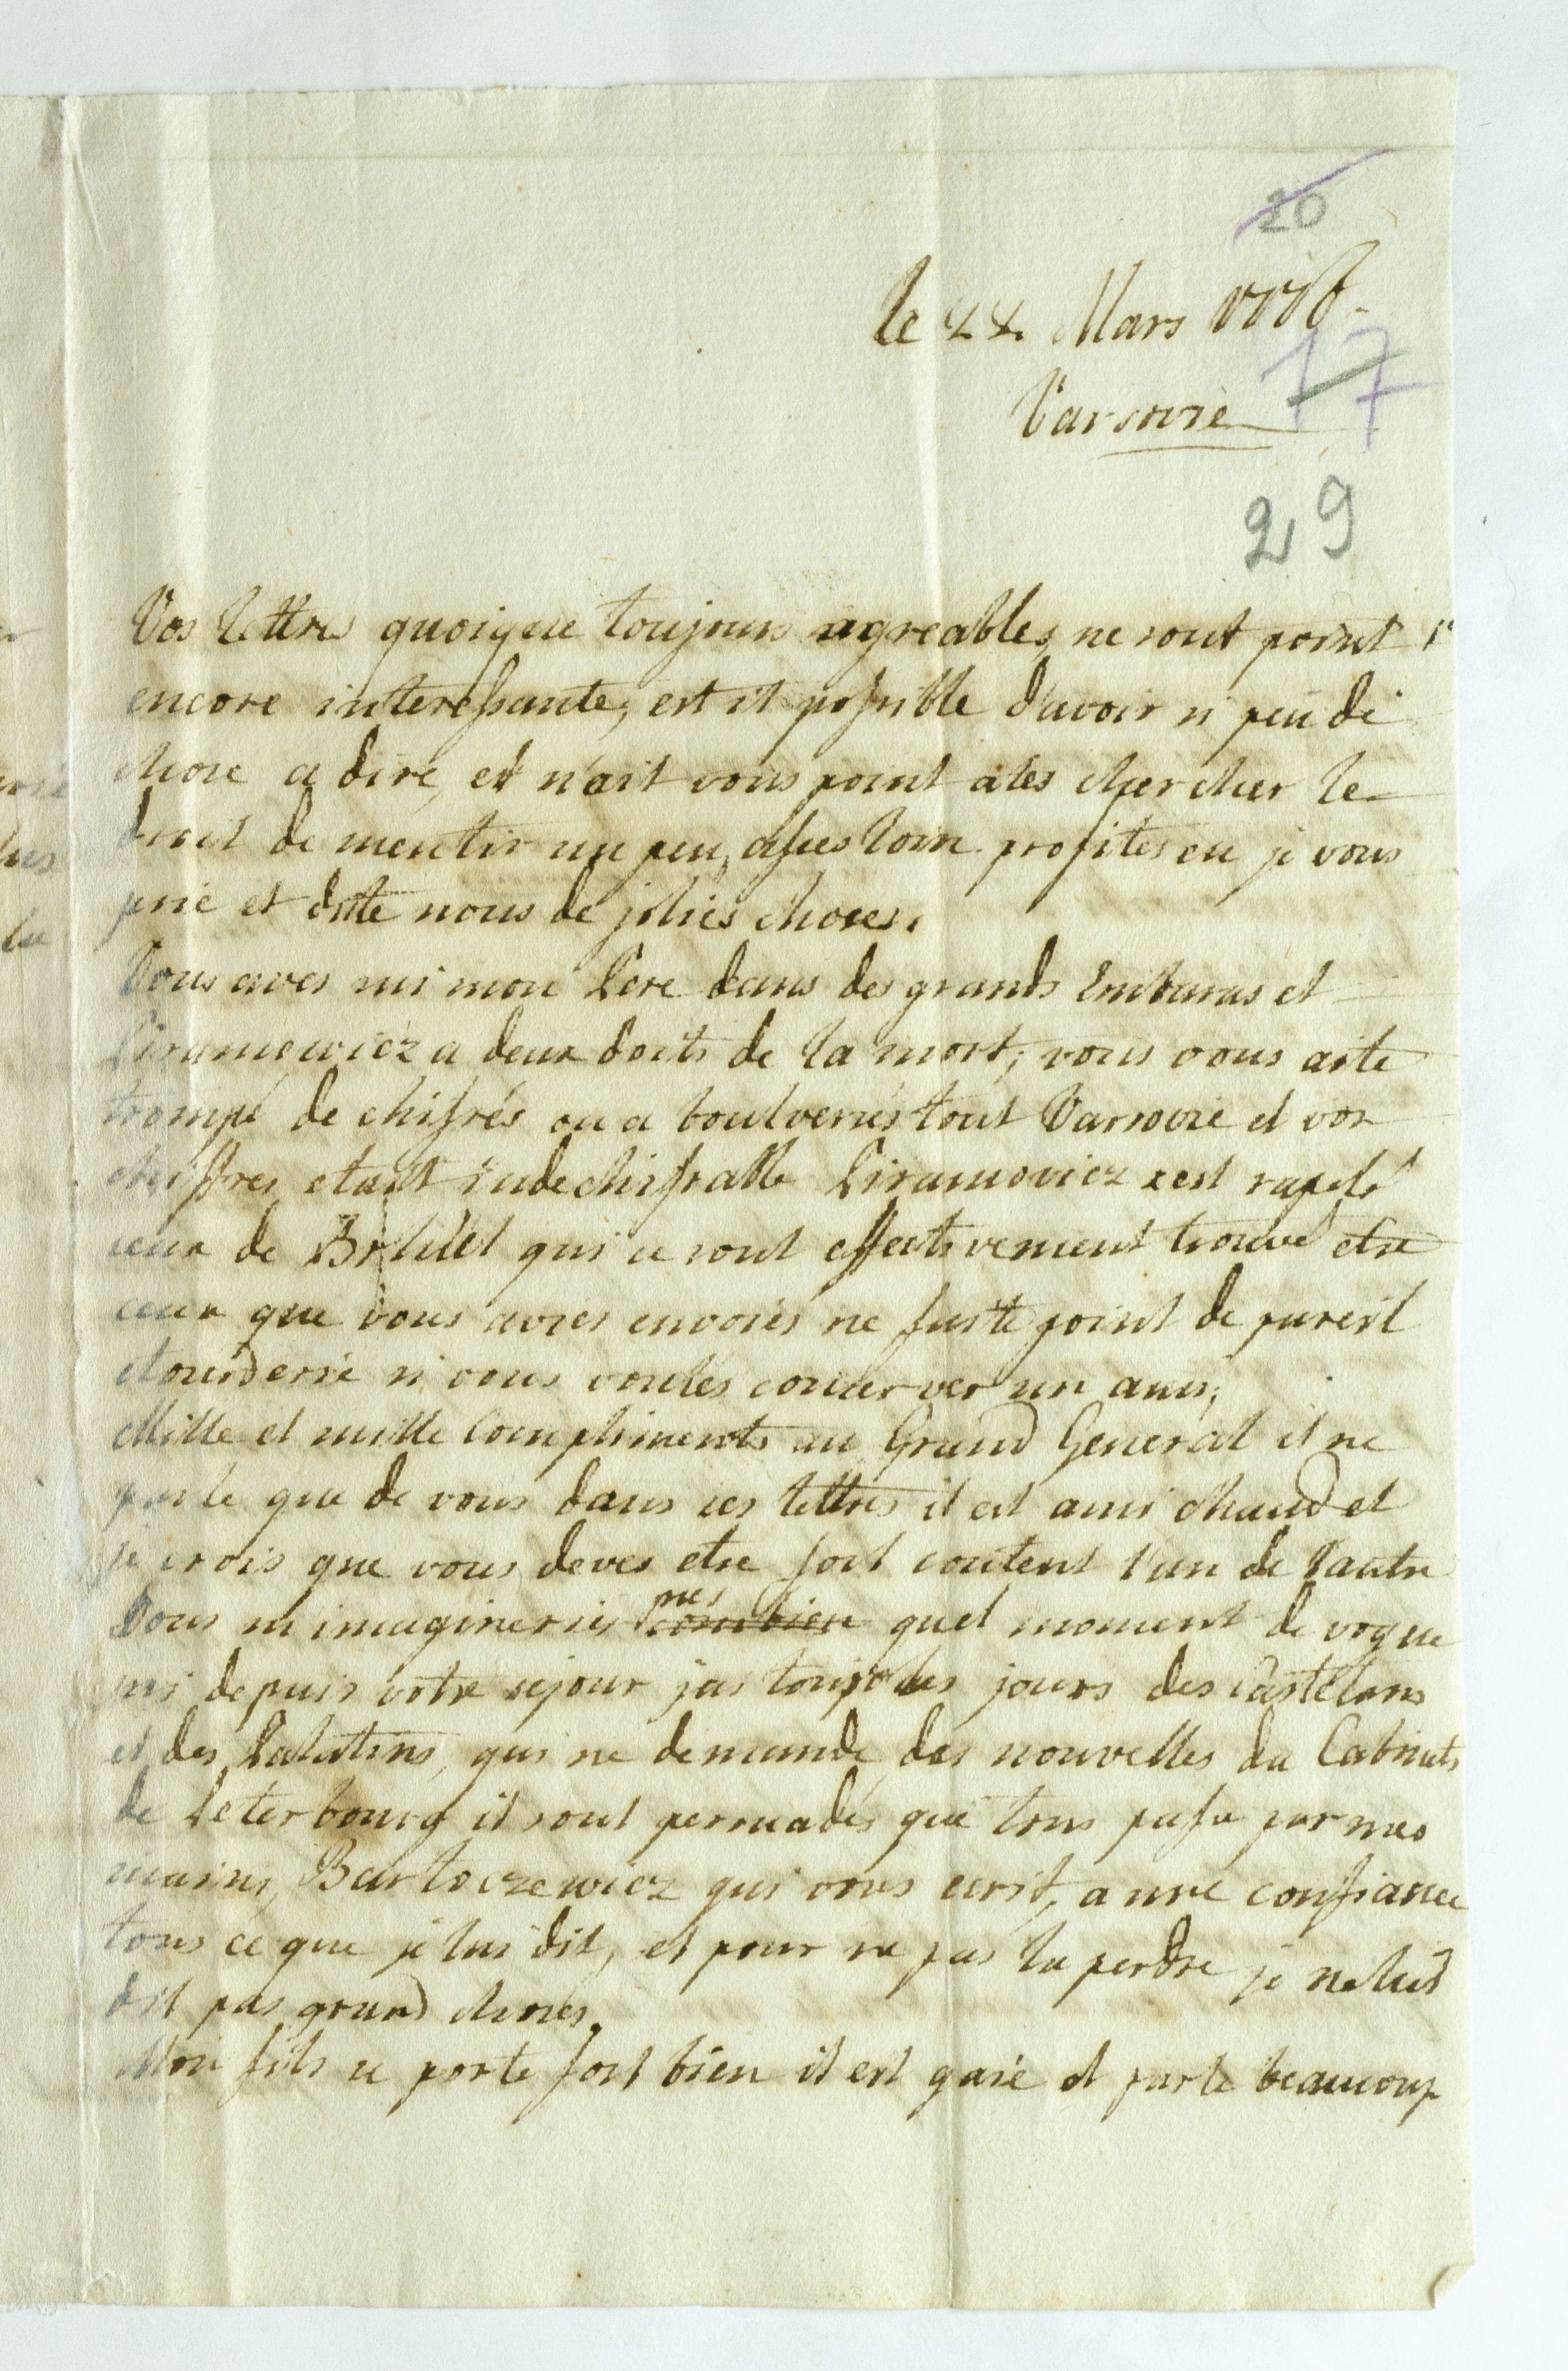 20
le 22. Mars 1776.
17
Varsovie
29
Vos lettres quoique toujours agreables, ne sont point
encore interessante, est il possible d'avoir si peu de
chose a dire, et n'ait vous point ales chercher le
droit de mentir un peu, asses loin profités en je vous
prie et dite nous de jolies choses.
Vous aves mi mon Pere dans des grands Embaras et
Piramowicz a deux doits de la mort, vous vous aite
trompé de chifrés on a boulversés tout Varsovie et vos
chiffres etant indechifrable Piramovicz s'est rapelé
ceux de Brühl qui ce sont effectivement trouvé etre
ceux que vous avies envoiés ne faite point de pareil
etourderie si vous voulés conserver un ami,
Mille et mille Compliments au Grand General il ne
parle que de vous dans ces lettres il est ami chaud et
je crois que vous deves etre fort content l'un de l'autre
pas
Vous m imagineries combien quel moment de vogue
depuis votre sejour jai toujours les jours des Castelans
et des Palatins, qui me demande des nouvelles du Cabinets
de Peterbourg il sont persuadés que tous passe par mes
mains, Bartoczewicz qui vous ecrit, a une confiance
tous ce que je lui dit, et pour ne pas la perdre je ne lui
dit pas grand choses.
Mon fils ce porte fort bien il est gaié et parle beaucoup